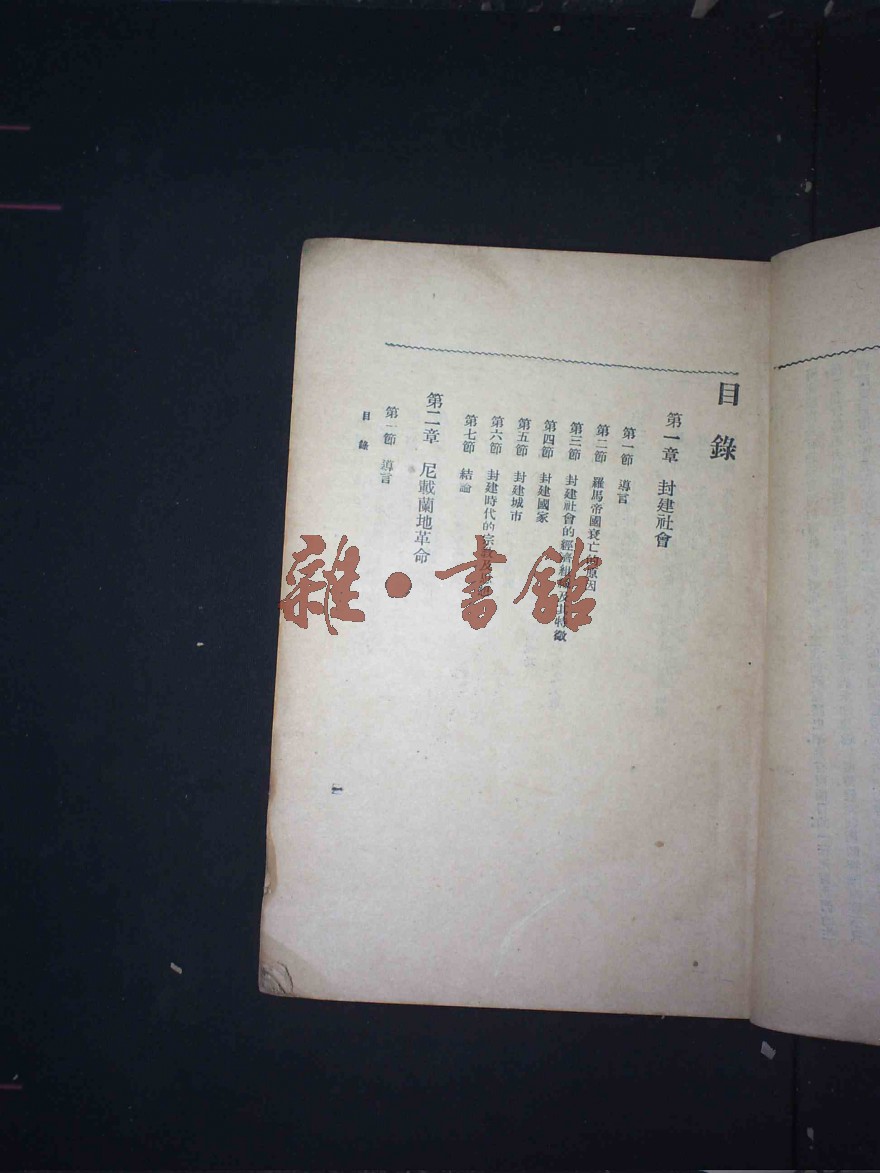 目錄
第一章 封建社會
第一節 導言
第二節 羅馬帝國衰亡的原因
第三節 封建社會的經濟組織及其特徵
第四節 封建國家
第五節 封建城市
第六節 封建時代的宗教及
第七節 結論
第二章 尼載蘭地革命
第一節 導言
目錄
一
雜·書館